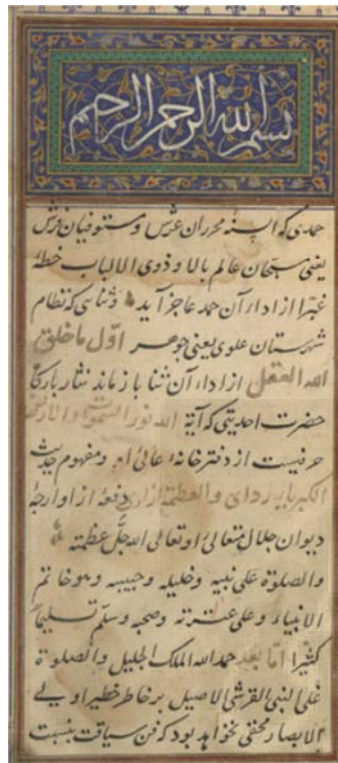 بسم الله الرحمن الرحیم
حمدی که السنهٔ محرران عرش و مستوفیان فرش
یعنی مسبحان عالم بالا و ذوی الالباب خطهٔ
غبرا از ادار آن حمد عاجز آید و ثنایی که نظام
شهرستان علوی یعنی جوهر اوّل ما خلق
الله العقل از ادار آن ثنا باز ماند نثار بارگاه
حضرت احدیتی که آیهٔ الله نور السموات والارض
حرفیست از دفترخانهٔ عالی او و مفهوم حدیث
الکبریاء ردای والعظمة ازاری دفعهٔ از اوارجهٔ
دیوان جلال متعالی او تعالی الله جلّ عظمته
والصلوة علی نبیه و خلیله و حبیبه و هو خاتم
الانبیاء و علی عترته و صحبه و سلّم تسلیماً
کثیرا امّا بعد حمدالله الملک الجلیل والصلوة
علی النبی القرشی الاصیل بر خاطر خطیر اولی
الابصار مخفی نخواهد بود که فن سیاقت بنسبت